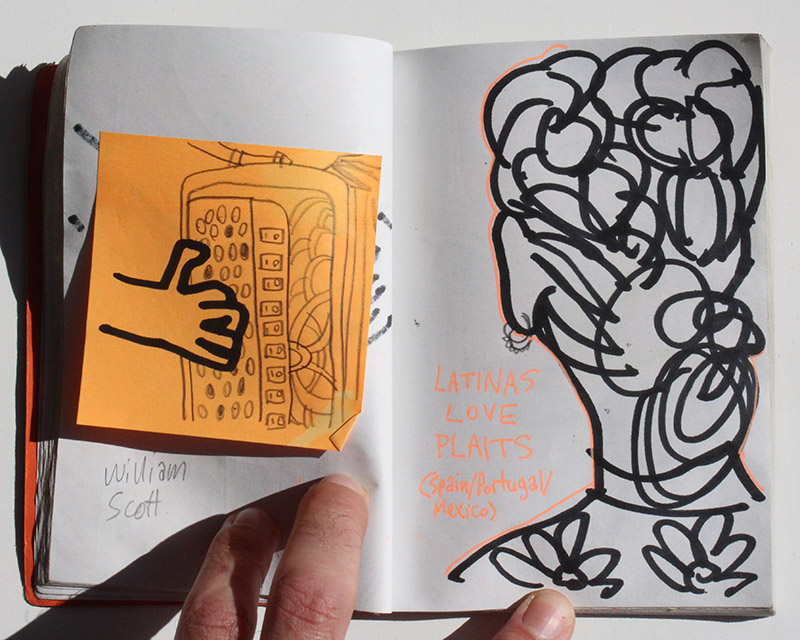 William
Scott
LATINAS
LOVE
PLAITS
(Spain/Portugal/
Mexico)